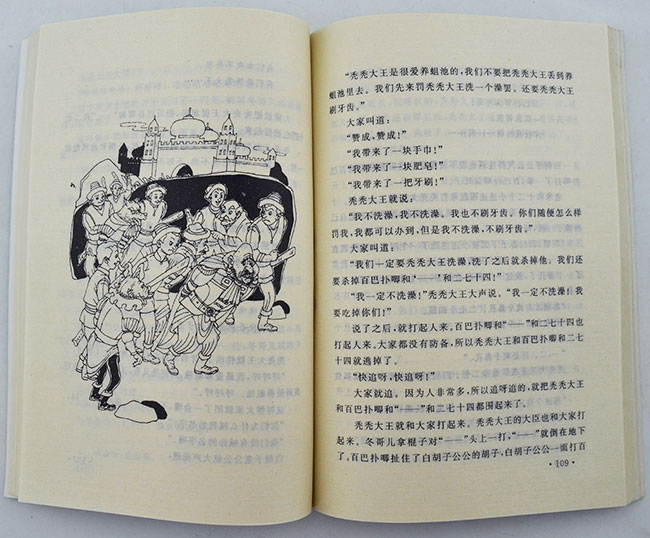 “秃秃大王是很爱养蛆池的，我们不要把秃秃大王丢到养
蛆池里去。我们先来罚秃秃大王洗一个澡罢。还要秃秃大王
刷牙齿。”
大家叫道：
“赞成，赞成！”
“我带来了一块手巾！”
“我带来了一块肥皂！”
“我带来了一把牙刷！”
秃秃大王就说。
“我不洗澡，我不洗澡。我也不刷牙齿。你们随便怎么样
罚我，我都可以办到，但是我不洗澡，不刷牙齿。”
大家叫道：
“我们一定要秃秃大王洗澡，洗了之后就杀掉他。我们还
要杀掉百巴扑唧和‘——’和二七十四！”
“我一定不洗澡！”秃秃大王大声说。“我一定不洗澡！我
要吃掉你们！”
说了之后，就打起人来。百巴扑唧和“——”和二七十四也
打起人来。大家都没有防备，所以秃秃大王和百巴扑唧和二七
十四就逃掉了。
“快追呀，快追呀！”
大家就追。因为人非常多，所以追呀追的，就把秃秃大王
和百巴扑唧和“——”和二七十四都围起来了。
秃秃大王就和大家打起来。秃秃大王的大臣也和大家打
起来。冬哥儿拿棍子对“——”头上一打，“——”就倒在地下
了。百巴扑唧扯住了白胡子公公的胡子，白胡子公公一面打百
·109·